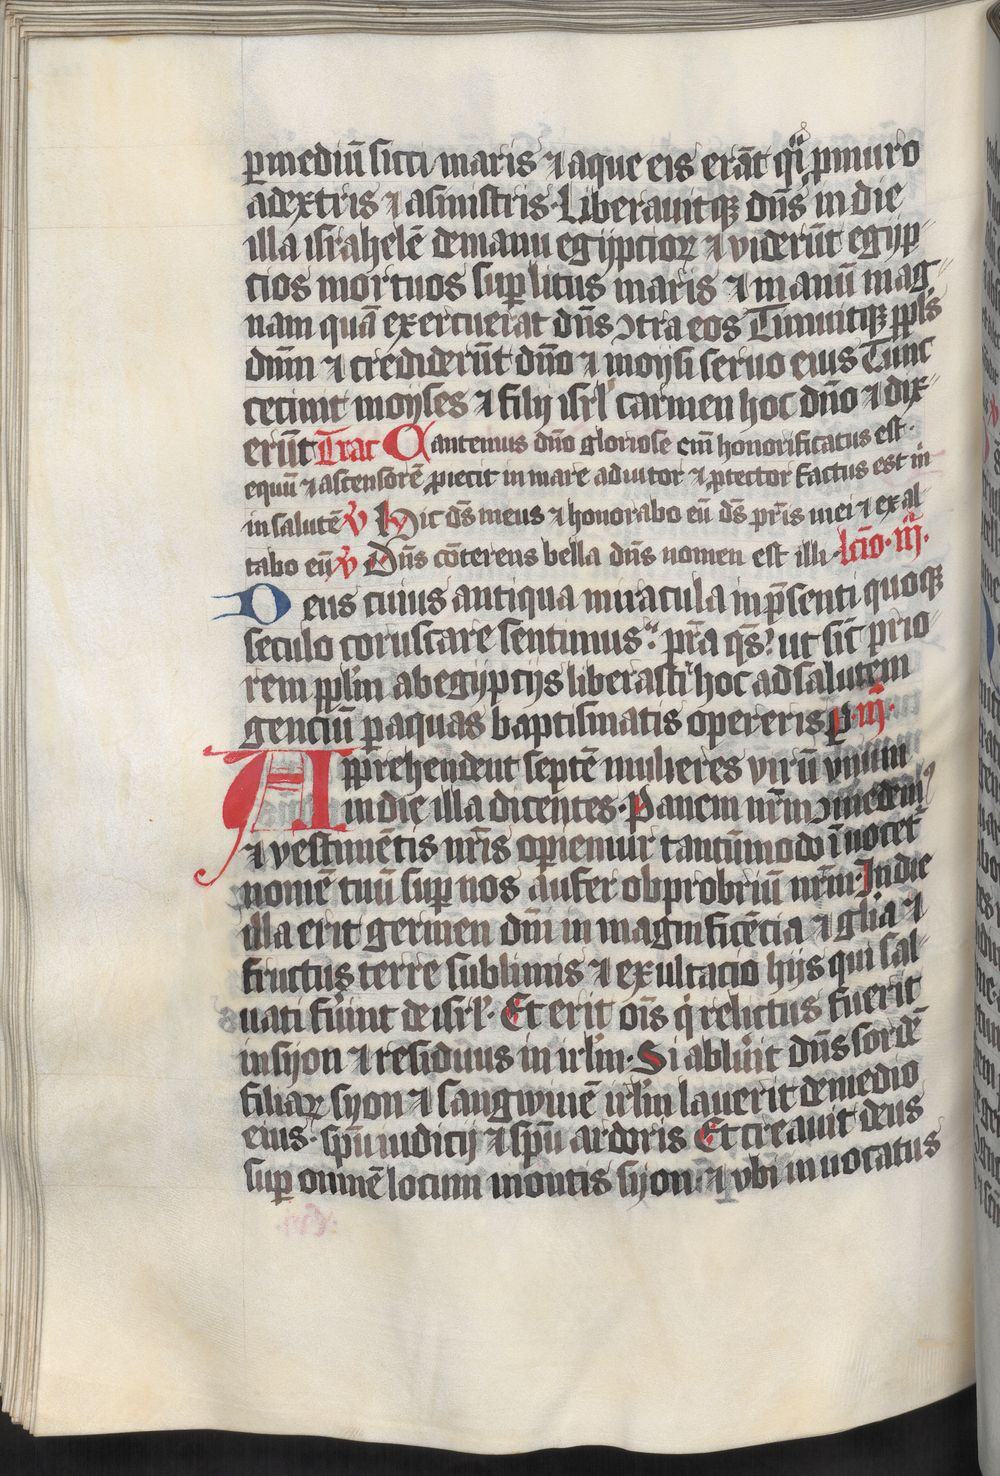 ꝑmediū sicci maris ⁊ aque eis erāt qͣi ꝓmuro
adextris ⁊ asinistris· Liberauitqꝫ dn̄s in die
illa israhelē demanu egypcioꝝ ⁊ viderūt egyp
cios mortuos suꝑ litus maris ⁊ manū mag
nam quā exercuerat dn̄s ↄtra eos Timuitqꝫ ppl̄s
dn̄m ⁊ crediderūt dn̄o ⁊ moysi seruo eius Tunc
cecinit moyses ⁊ filij isrl̄ carmen hoc dn̄o ⁊ dix
erūt Trac Cantemus dn̄o gloriose eni̅ honorificatus est·
equū ⁊ ascensorē ꝓiecit in mare adiutor ⁊ ꝓtector factus est m̄
in salutē v̄ hic ds̄ meus ⁊ honorabo eū ds̄ pr̄is mei ⁊ exal
tabo eū v̄ Dn̄s cōterens bella dn̄s nomen est illi· lcīo· iij·
Deus cuius antiqua miracula inp̄senti quoqꝫ
seculo coruscare sentimus· pr̄a qs̄· ut sic̄ prio
rem ppl̄m abegyptijs liberasti hoc adsalutem
genciū ꝑaquas baptismatis opereris ꝑ iij·
Apprehendent septē mulieres virū vnum
in die illa dicentes· Panem nr̄m ↄmedimꝰ
⁊ vestimētis nr̄is opiemur tantūmodo īuocet
nomē tuū suꝑ nos aufer obprobriū nr̄m· In die
illa erit germen dn̄i in magnificēcia ⁊ gl̄ia ⁊
fructus terre sublimis ⁊ exultacio hijs qui sal
uati fūint de isrl̄· Et erit oīs q̇ relictus fuerit
insyon ⁊ residuus in irl̄m· Si abluīt dn̄s sordē
filiaꝝ syon ⁊ sangwinē irl̄m lauerit demedio
eius· spū iudicij ⁊ spū ardoris Et creauit deus
suꝑ omnē locum montis syon· ⁊ vbi inuocatus